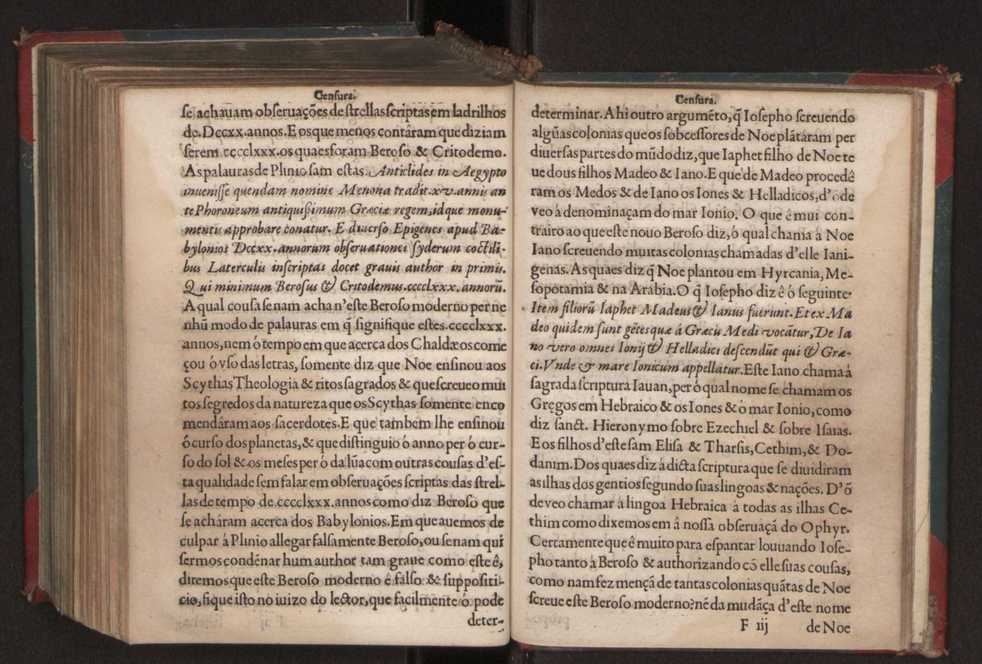 Censura.
se achauam obseruações de strellas scriptas em ladrilhos
de. Dccxx. annos. E os que menos contâram que diziam
serem cccclxxx. os quaes foram Beroso & Critodemo.
As palauras de Plinio sam estas. Anticlides in Aegypto
inuenisse quendam nomine Menona tradit xv. annis an
te Phoroneum antiquissimum Græciæ regem, idque monu-
mentis approbare conatur. E diuerso Epigenes apud Ba-
bylonios Dccxx. annorum obseruationes syderum coctili-
bus Laterculis inscriptas docet grauis author in primis.
Qui minimum Berosus & Critodemus. ccccLxxx. annorũ.
A qual cousa se nam acha n'este Beroso moderno per ne
nhũ modo de palauras em q̃ signifique estes. cccclxxx.
annos, nem ó tempo em que acerca dos Chaldæos come
çou ó vso das letras, somente diz que Noe ensinou aos
Scythas Theologia & ritos sagrados & que screueo mui
tos segredos da natureza que os Scythas somente enco
mendâram aos sacerdotes. E que tambem lhe ensinou
ó curso dos planetas, & que distinguio ó anno per ó cur-
so do sol & os meses per ó da lũa com outras cousas d'es-
ta qualidade sem falar em obseruações scriptas das strel-
las de tempo de cccclxxx. annos como diz Beroso que
se achâram acerca dos Babylonios. Em que auemos de
culpar à Plinio allegar falsamente Beroso, ou se nam qui
sermos condẽnar hum author tam graue como este é,
diremos que este Beroso moderno é falso & suppositi-
cio, fique isto no iuizo do lector, que facilmente ó pode
deter-
Censura.
determinar. A hi outro argumẽto, q̃ Iosepho screuendo
algũas colonias que os sobcessores de Noe plãtâram per
diuersas partes do mũdo diz, que Iaphet filho de Noe te
ue dous filhos Madeo & Iano. E que de Madeo procedê
ram os Medos & de Iano os Iones & Helladicos, d'õde
veo á denominaçam do mar Ionio. O que é mui con-
trairo ao que este nouo Beroso diz, ó qual chama à Noe
Iano screuendo muitas colonias chamadas d'elle Iani-
genas. As quaes diz q̃ Noe plantou em Hyrcania, Me-
sopotamia & na Arabia. O q̃ Iosepho diz é ó seguinte.
Item filiorũ Iaphet Madeus & Ianus fuerunt. Et ex Ma
deo quidem sunt gẽtes quæ á Græcis Medi vocãtur, De Ia
no vero omnes Ionij & Helladici descendũt qui & Græ-
ci. Vnde & mare Ionicum appellatur. Este Iano chama á
sagrada scriptura Iauan, per ó qual nome se chamam os
Gregos em Hebraico & os Iones & ó mar Ionio, como
diz sanct. Hieronymo sobre Ezechiel & sobre Isaias.
E os filhos d'este sam Elisa & Tharsis, Cethim, & Do-
danim. Dos quaes diz á dicta scriptura que se diuidiram
as ilhas dos gentios segundo suas lingoas & nações. D'õ
de veo chamar á lingoa Hebraica à todas as ilhas Ce-
thim como dixemos em à nossa obseruaçã do Ophyr.
Certamente que é muito para espantar louuando Iose-
pho tanto à Beroso & authorizando cõ elle suas cousas,
como nam fez mençã de tantas colonias quãtas de Noe
screue este Beroso moderno? nẽ da mudãça d'este nome
F iij de Noe